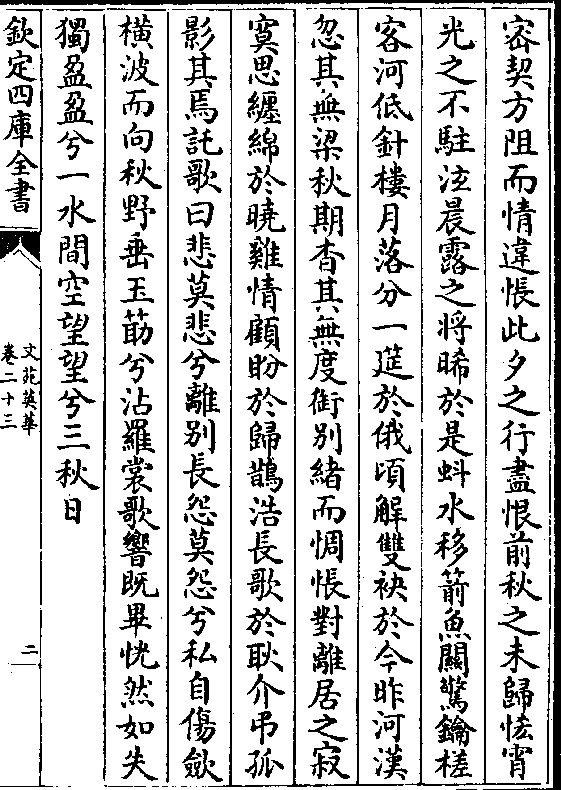 密契方阻而情違悵此夕之行盡恨前秋之未歸怯宵
光之不駐泣晨露之將晞於是蚪水移箭魚關驚鑰槎
客河低針樓月落分一筵於俄頃解雙袂於今昨河漢
忽其無梁秋期杳其無度銜別緒而惆悵對離居之寂
寞思纏綿於曉雞情顧盼於歸鵲浩長歌於耿介弔孤
影其焉託歌曰悲莫悲兮離別長怨莫怨兮私自傷歛
橫波而向秋野垂玉莇兮沾羅裳歌響既畢恍然如失
獨盈盈兮一水間空望望兮三秋日
欽定四庫全書
文苑英華
卷二十三
二